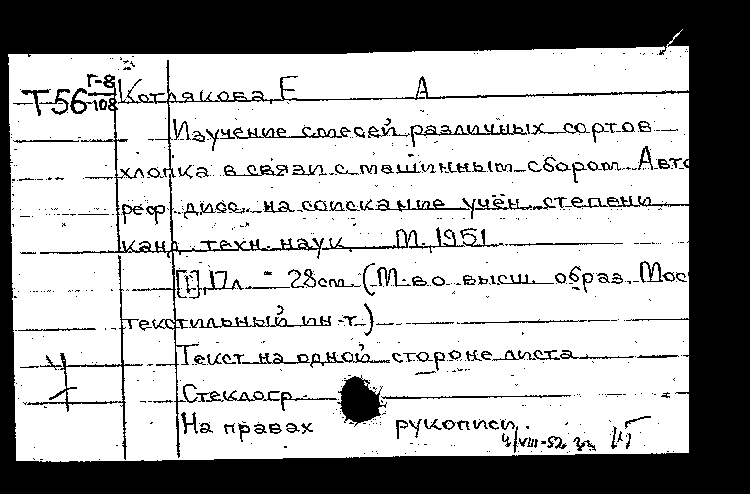 Т56 Г-8/108 Котлякова, Е А
Изучение смесей различных сортов
хлопка в связи с машинным сбором. Авто
реф. дисс. на соискание учён. степени
канд. техн. наук. М., 1951
[1], 17 л. 28 см. (М-во высш. образ. Мос
текстильный ин-т)
Текст на одной стороне листа
Стеклогр.
На правах рукописи.